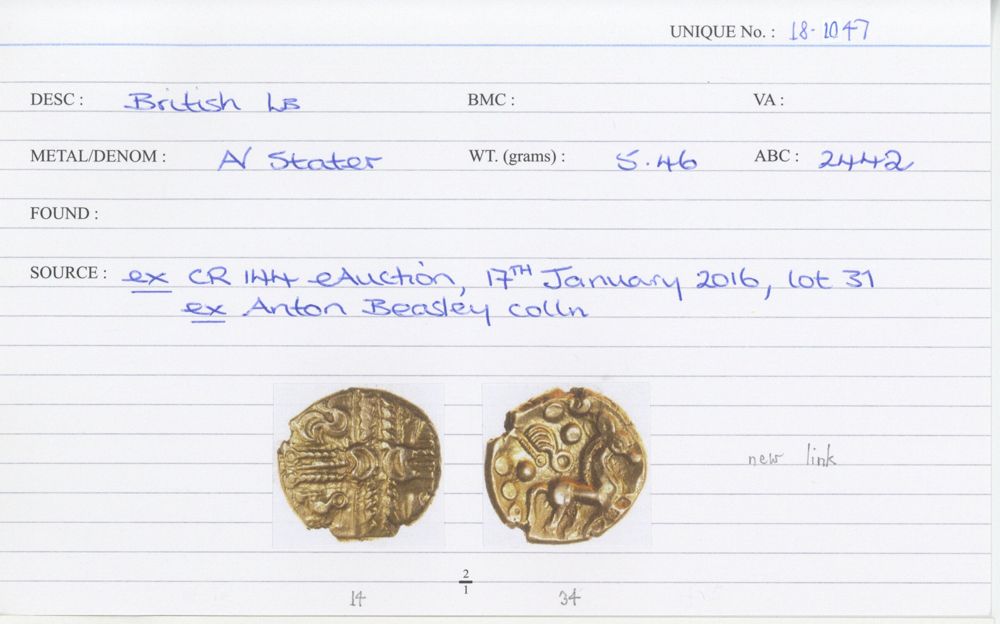 UNIQUE No. : 18-1047
DESC : British LB BMC : VA :
METAL/DENOM : A/ Stater WT. (grams) : 5.46 ABC : 2442
FOUND :
SOURCE : ex CR 144 eAuction, 17TH January 2016, lot 31
ex Anton Beasley colln
new link
2
1
14 34